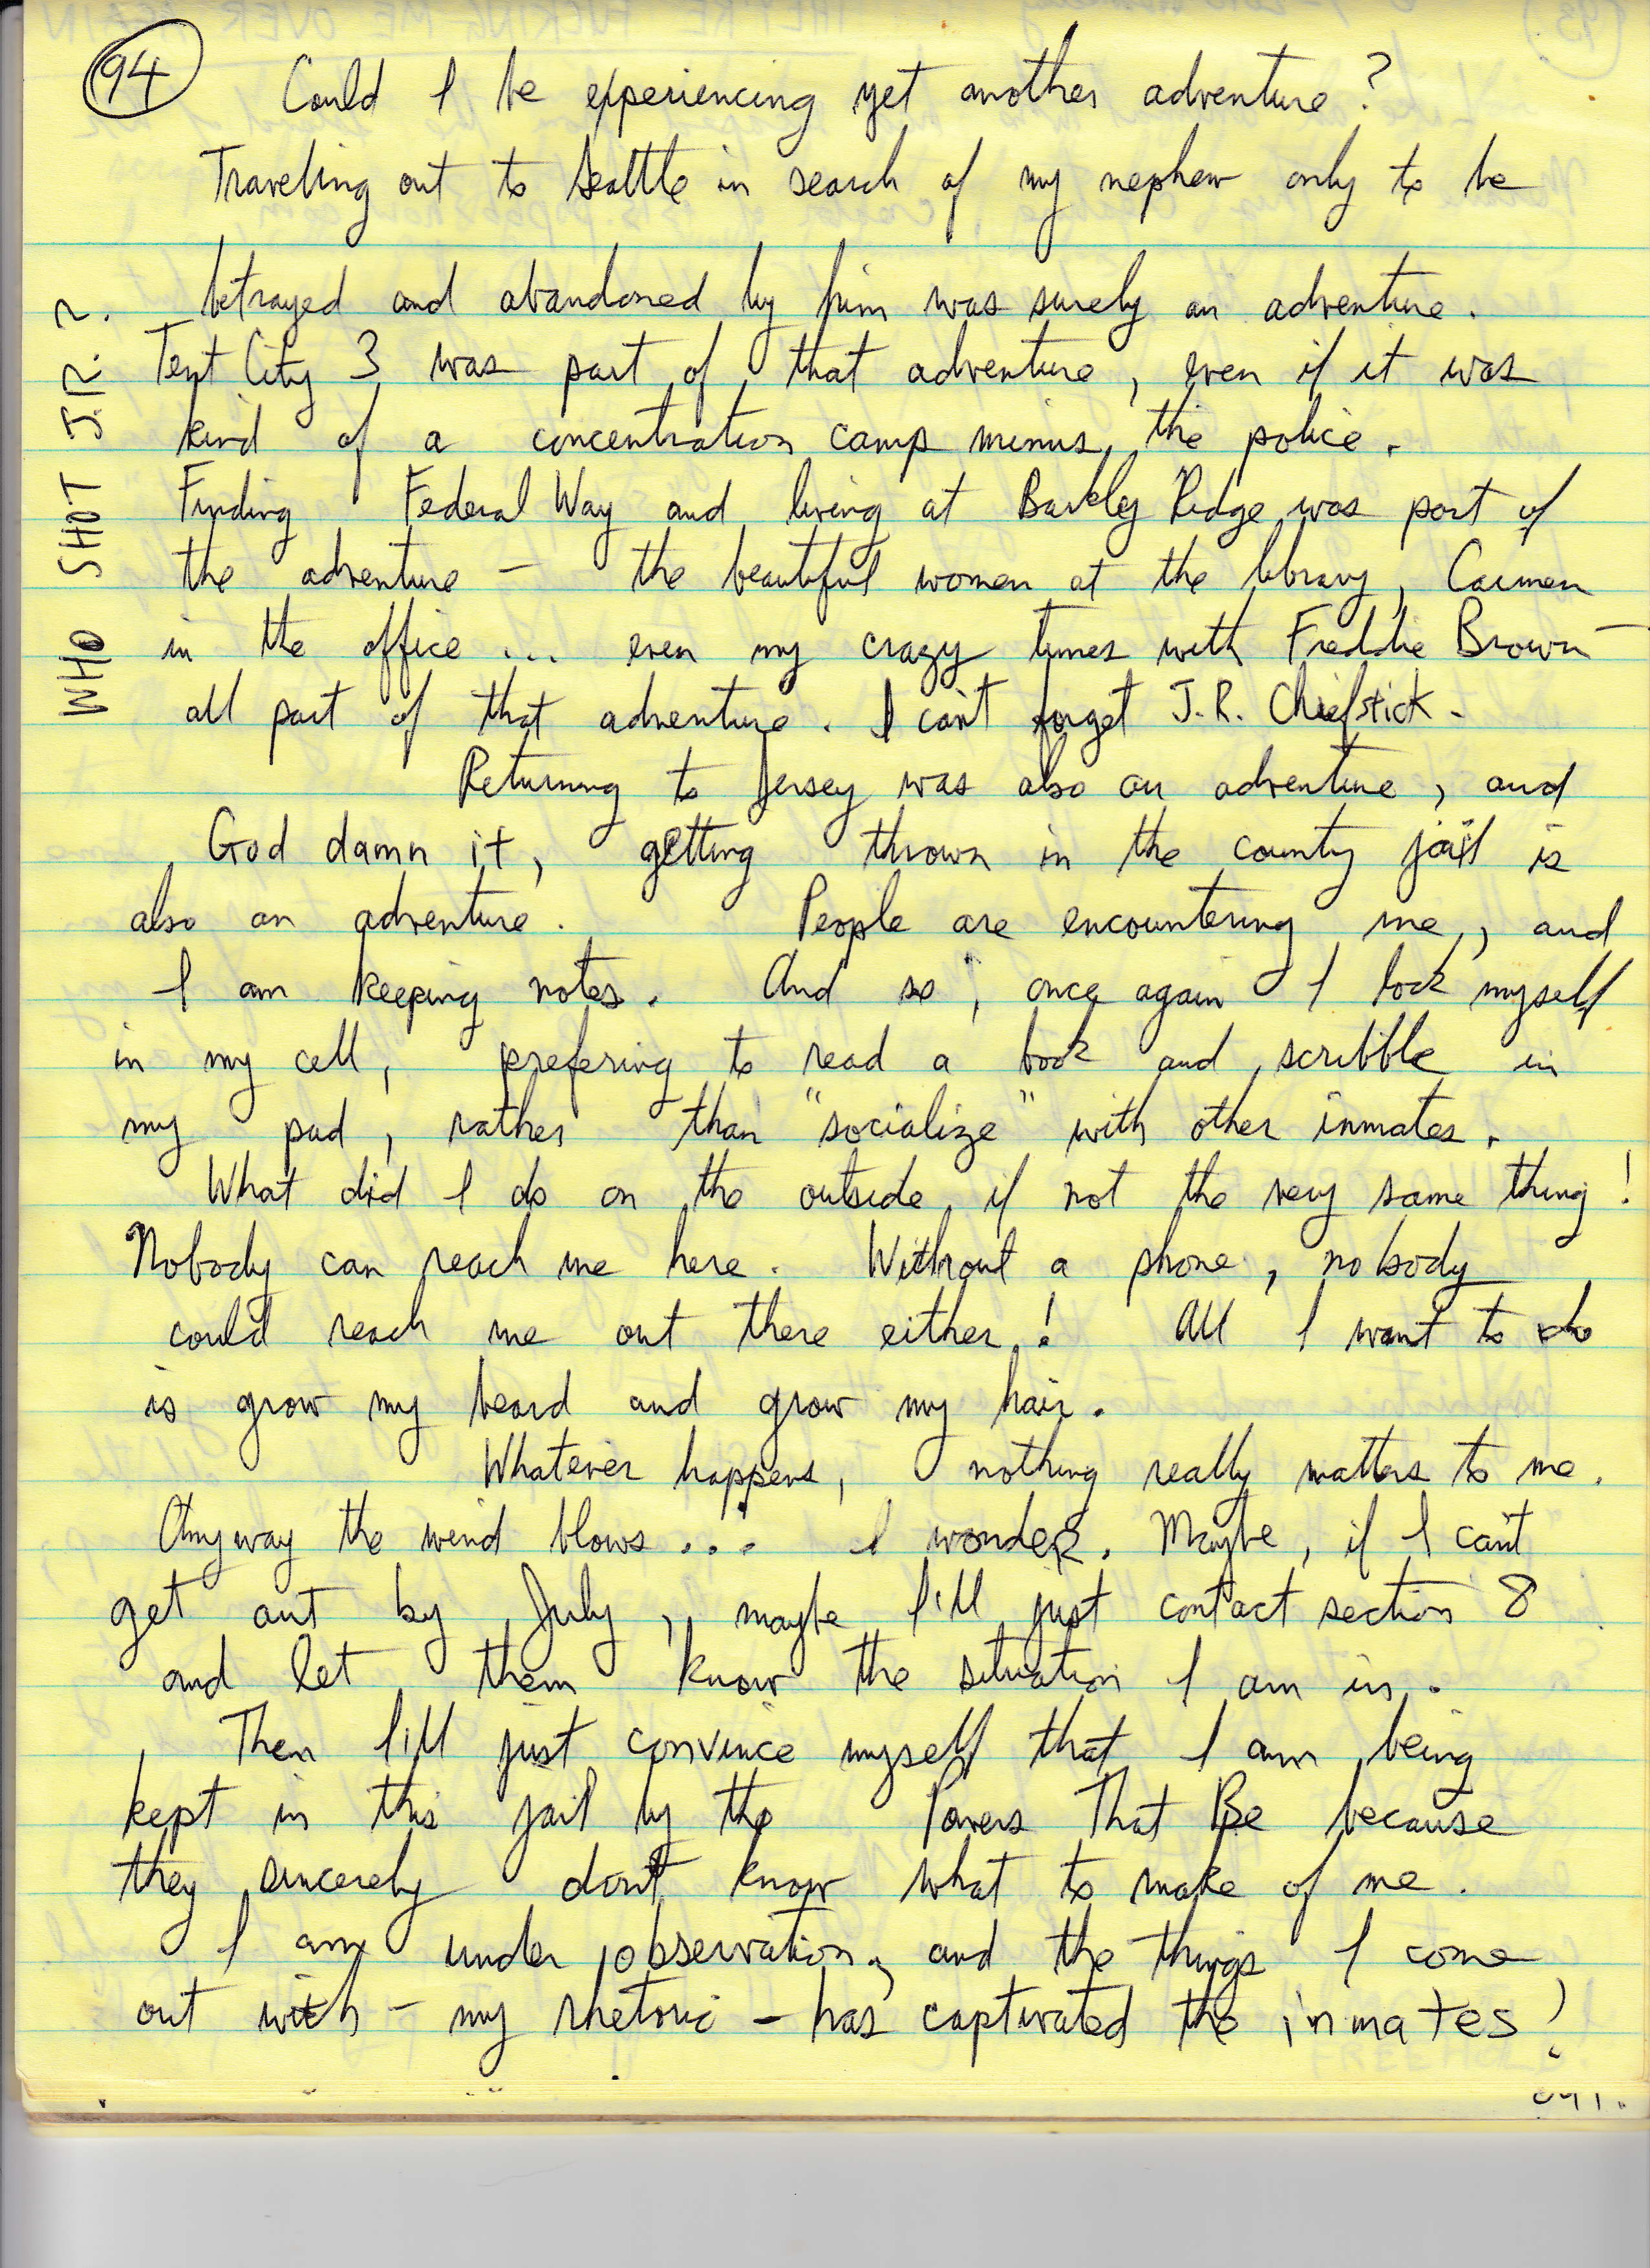 94
Could I be experiencing yet another adventure?
Traveling out to Seattle in search of my nephew only to be
betrayed and abandoned by him was surely an adventure.
Tent City 3 was part of that adventure, even if it was
kind of a concentration camp minus the police.
Finding Federal Way and living at Barkley Ridge was part of
the adventure – the beautiful women at the library, Carmen
in the office ... even my crazy times with Freddie Brown –
all part of that adventure. I can't forget J.R. Chiefstick.
Returning to Jersey was also an adventure, and
God damn it, getting thrown in the county jail is
also an adventure. People are encountering me, and
I am keeping notes. And so, once again I lock myself
in my cell, prefering to read a book and scribble in
my pad, rather than "socialize" with other inmates.
What did I do on the outside, if not the very same thing!
Nobody can reach me here. Without a phone, nobody
could reach me out there either! All I want to do
is grow my beard and grow my hair.
Whatever happens, nothing really matters to me.
Anyway the wind blows... I wonder. Maybe, if I can't
get out by July, maybe I'll just contact section 8
and let them know the situation I am in.
Then I'll just convince myself that I am being
kept in this jail by the Powers That Be because
they sincerely don't know what to make of me.
I am under observation, and the things I come
out with – my rhetoric – has captivated the inmates!
WHO SHOT J.R. ?